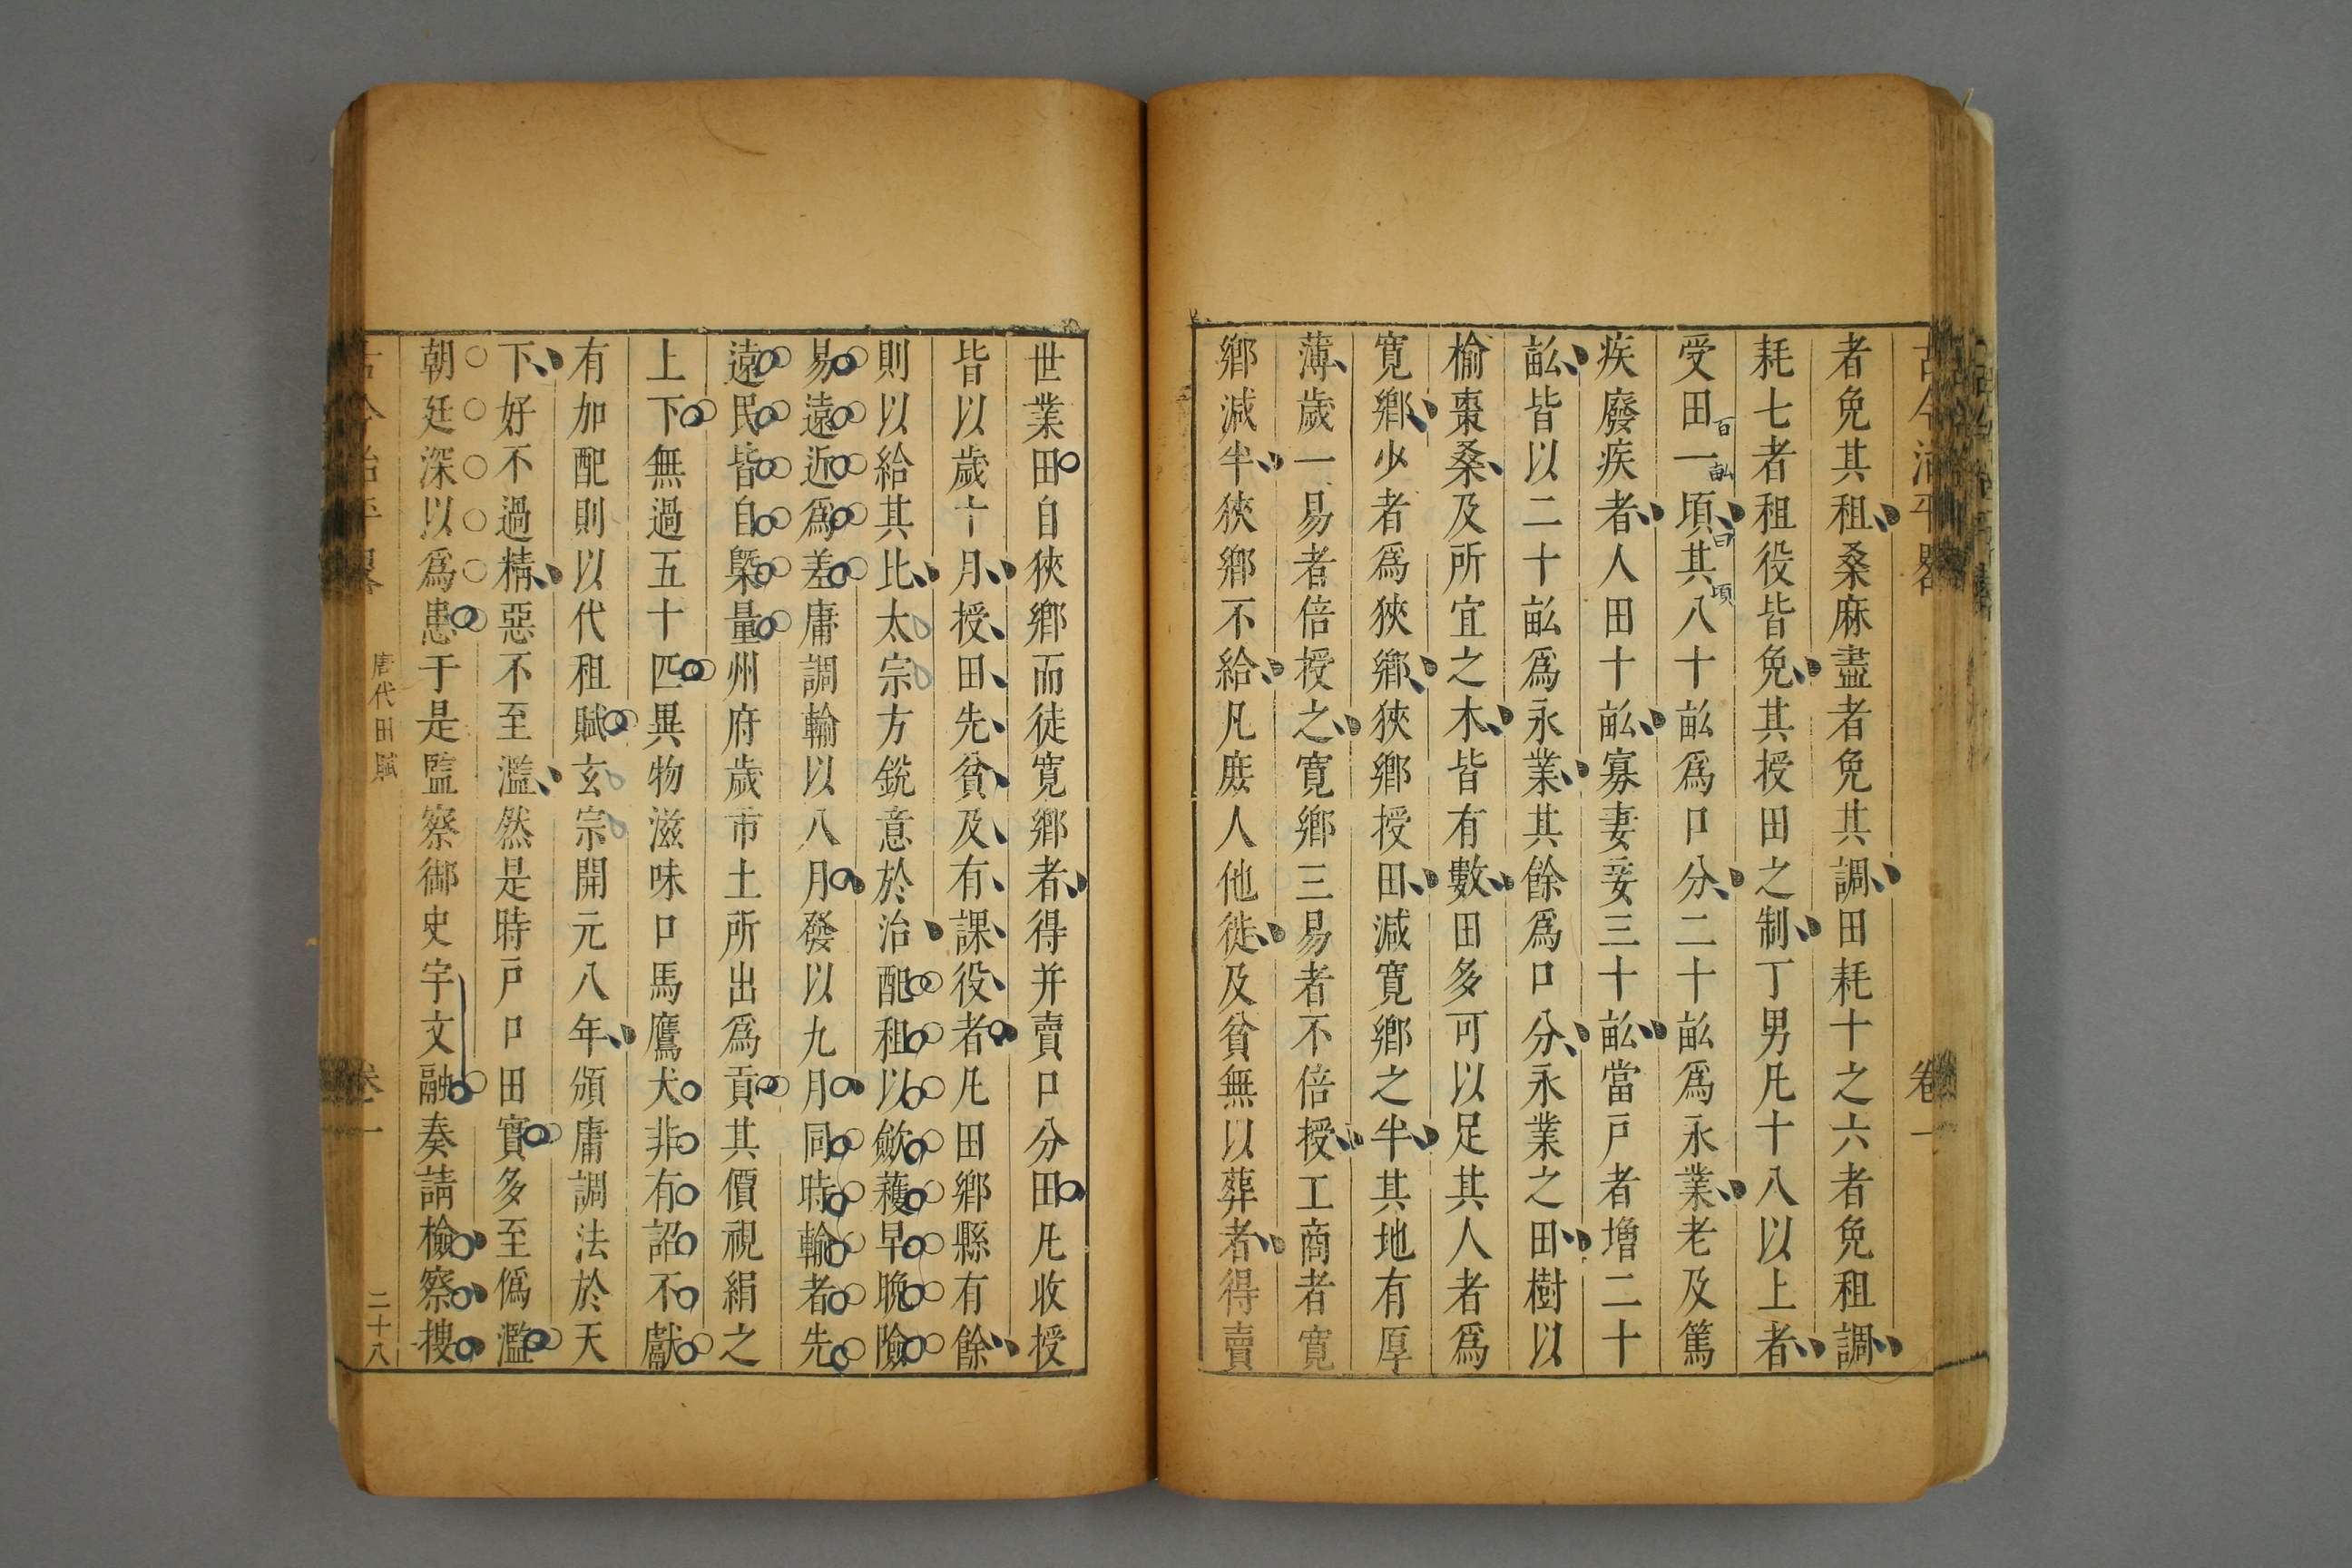 古今治平畧 卷一
者免其租桑麻盡者免其調田耗十之六者免租調
耗七者租役皆免其授田之制丁男凡十八以上者
受田一頃其八十畝爲口分二十畝爲永業老及篤
百畝曰頃
疾廢疾者人田十畝寡妻妾三十畝當戸者增二十
畝皆以二十畝爲永業其餘爲口分永業之田樹以
榆棗桑及所宜之木皆有數田多可以足其人者爲
寬鄉少者爲狹鄉狹鄉授田減寬鄉之半其地有厚
薄歲一易者倍授之寬鄉三易者不倍授工商者寬
鄉減半狹鄉不給凡庶人他徙及貧無以葬者得賣
世業田自狹鄉而徒寬鄉者得并賣口分田凡收授
皆以歲十月授田先貧及有課役者凡田鄉縣有餘
則以給其比太宗方銳意於治配租以斂穫早晚險
易遠近爲差庸調輸以八月發以九月同時輸者先
遠民皆自槩量州府歲市土所出爲貢其價視絹之
上下無過五十匹異物滋味口馬鷹犬非有詔不獻
有加配則以代租賦玄宗開元八年頒庸調法於天
下好不過精惡不至濫然是時戸口田實多至僞濫
朝廷深以爲患于是監察御史宇文融奏請檢察搜
古今治平畧 唐代田賦 卷一 二十八